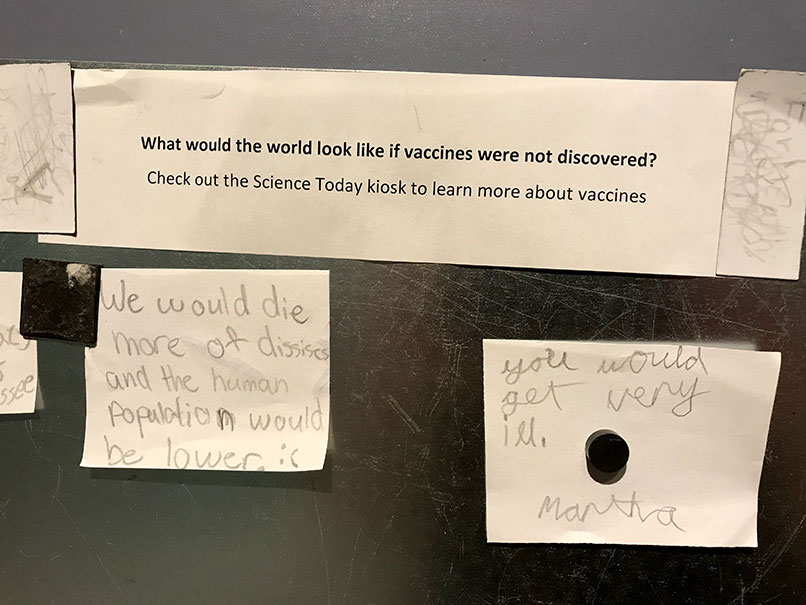 What would the world look like if vaccines were not discovered?
Check out the Science Today kiosk to learn more about vaccines
We would die
more of dissises
and the human
population would
be lower. :(
you would
get very
ill.
Mantra